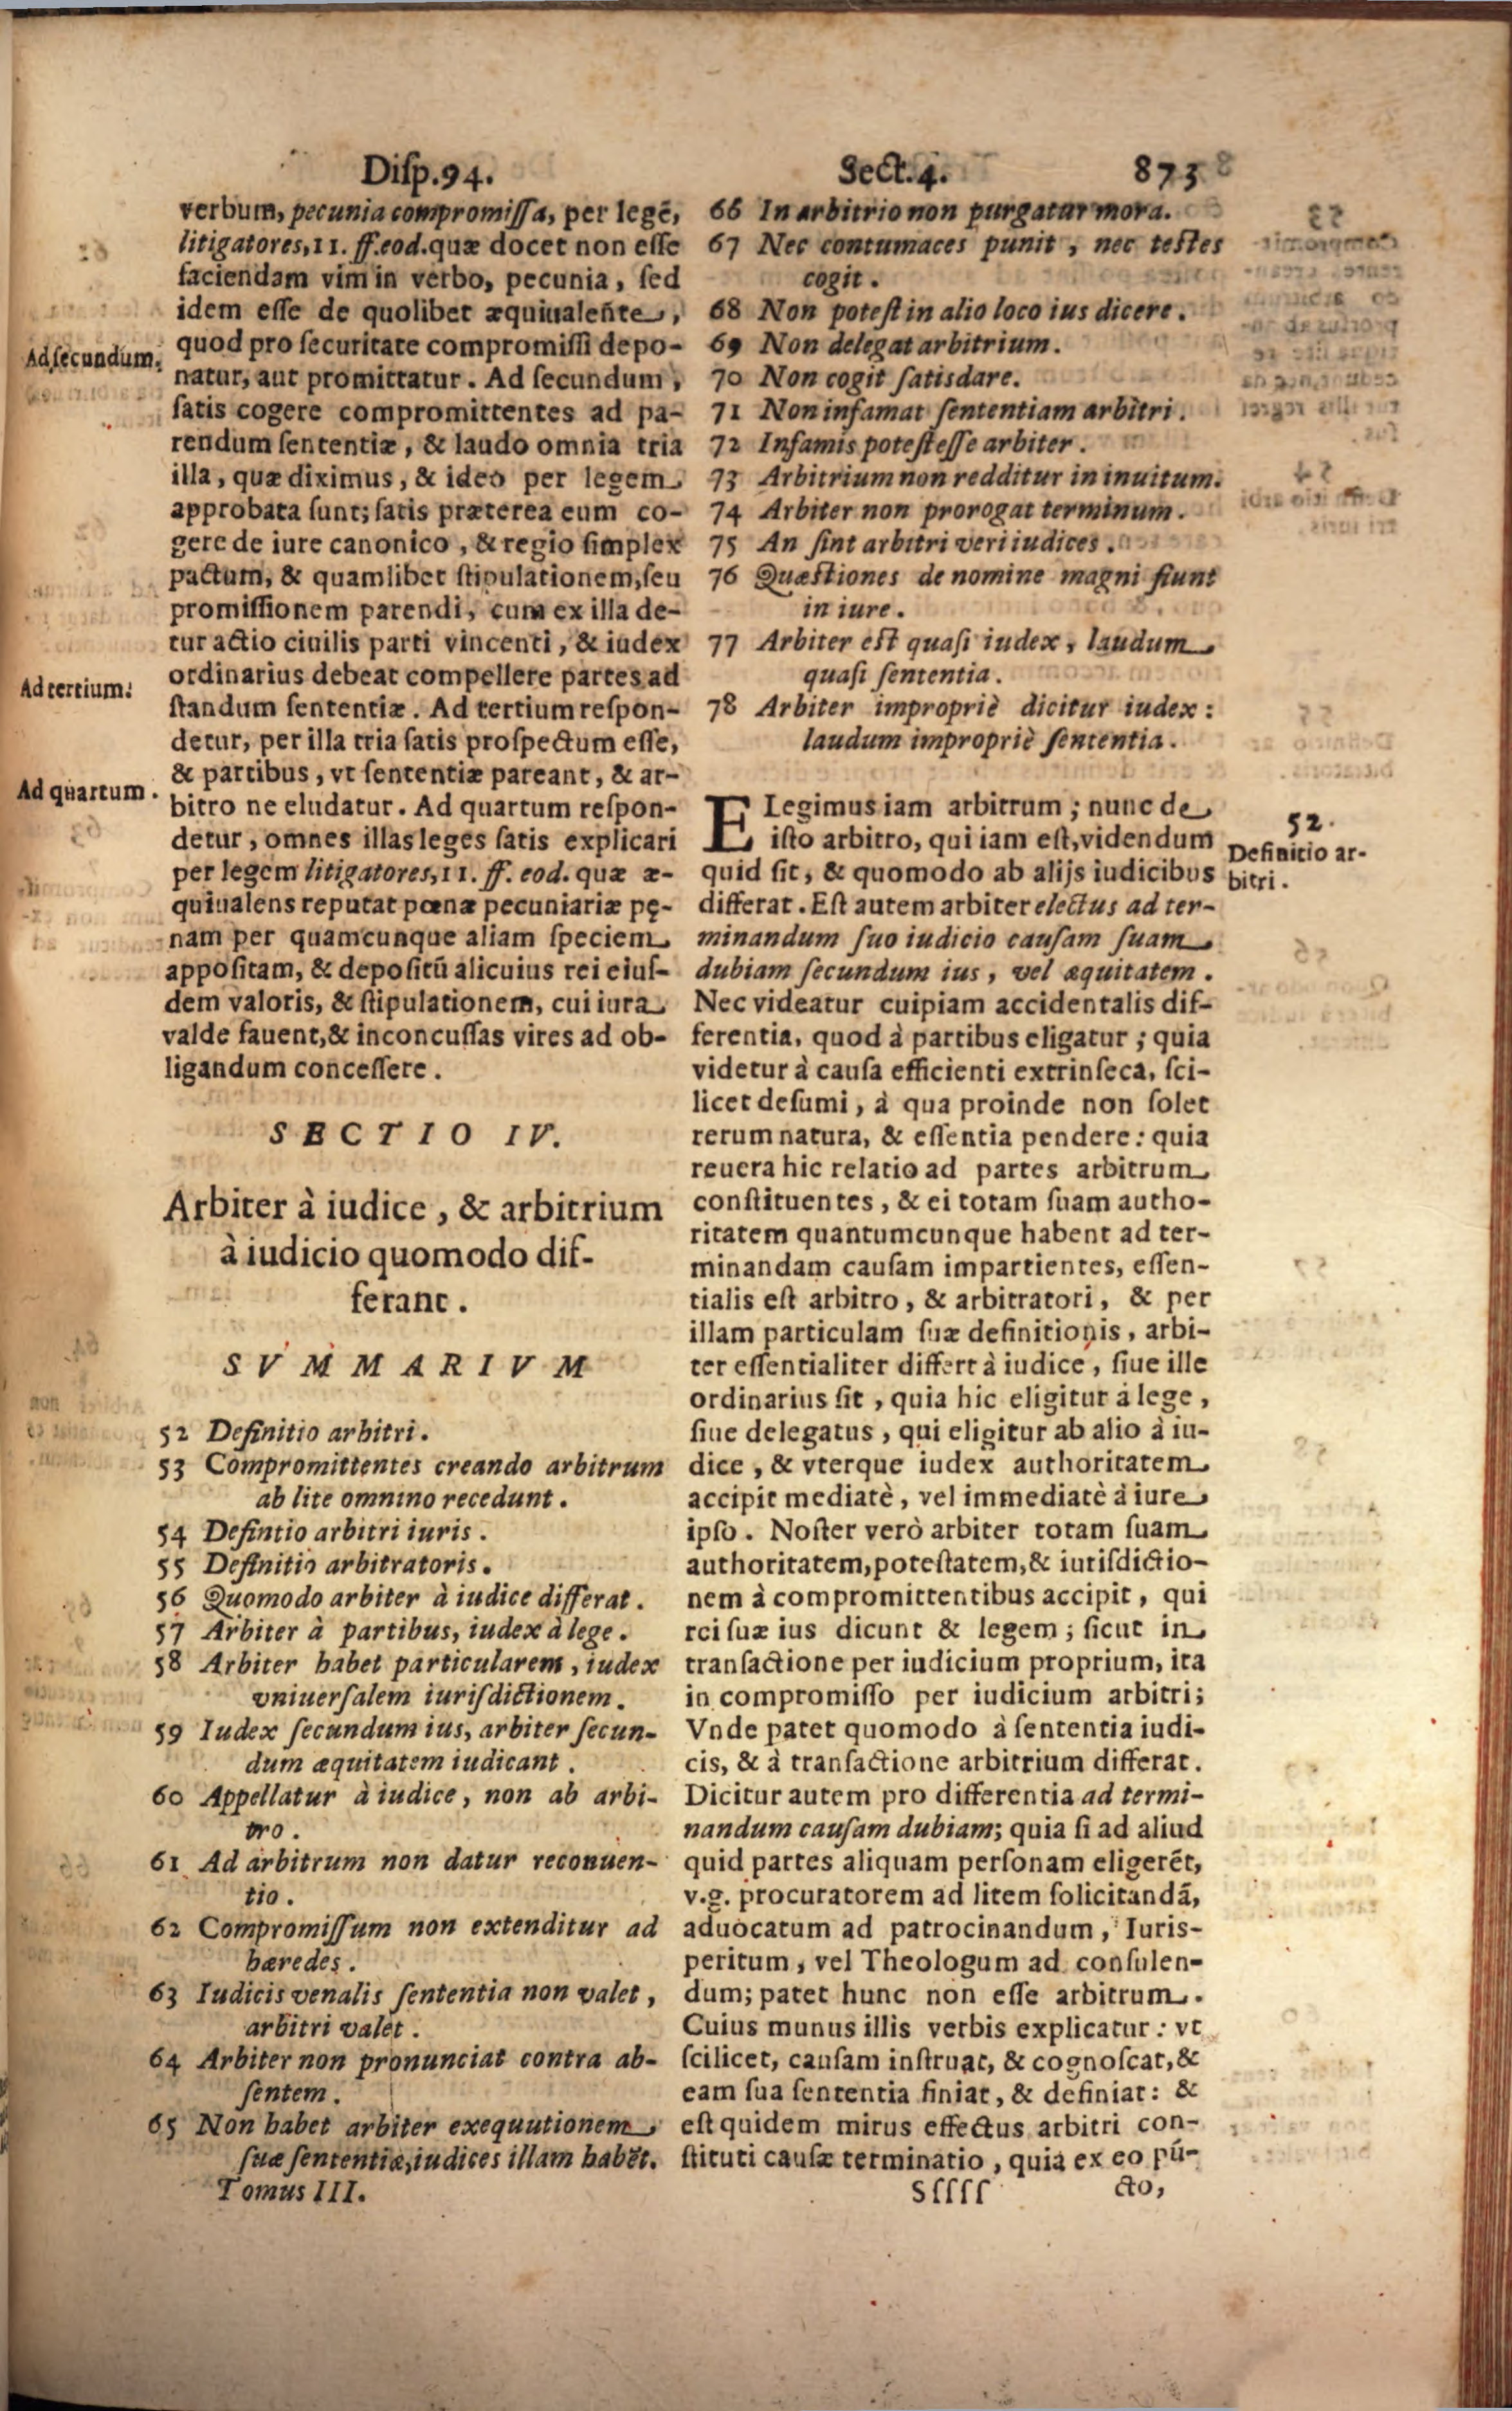 Diſp.94. Sect.4. 873
verbum, pecunia compromiſſa, per legẽ,
litigatores, 11. ff. eod. quæ docet non eſſe
faciendam vim in verbo, pecunia, ſed
idem eſſe de quolibet æquiualẽnte,
Ad ſecundum.
quod pro ſecuritate compromiſſi depo-
natur, aut promittatur. Ad ſecundum,
ſatis cogere compromittentes ad pa-
rendum ſententiæ, & laudo omnia tria
illa, quæ diximus, & ideo per legem
approbata ſunt; ſatis præterea eum co-
gere de iure canonico, & regio ſimplex
pactum, & quamlibet ſtipulationem, ſeu
promiſſionem parendi, cum ex illa de-
tur actio ciuilis parti vincenti, & iudex
ordinarius debeat compellere partes ad
Ad tertium.
ſtandum ſententiæ. Ad tertium reſpon-
detur, per illa tria ſatis proſpectum eſſe,
& partibus, vt ſententiæ pareant, & ar-
Ad quartum.
bitro ne eludatur. Ad quartum reſpon-
detur, omnes illas leges ſatis explicari
per legem litigatores, 11. ff. eod. quæ æ-
quiualens reputat pœnæ pecuniariæ pę-
nam per quamcunque aliam ſpeciem
appoſitam, & depoſitũ alicuius rei eiuſ-
dem valoris, & ſtipulationem, cui iura
valde fauent, & inconcuſſas vires ad ob-
ligandum conceſſere.
SECTIO IV.
Arbiter à iudice, & arbitrium
à iudicio quomodo dif-
ferant.
SVMMARIVM
52 Definitio arbitri.
53 Compromittentes creando arbitrum
ab lite omnino recedunt.
54 Defintio arbitri iuris.
55 Definitio arbitratoris.
56 Quomodo arbiter à iudice differat.
57 Arbiter à partibus, iudex à lege.
58 Arbiter habet particularem, iudex
vniuerſalem iuriſdictionem.
59 Iudex ſecundum ius, arbiter ſecun-
dum æquitatem iudicant.
60 Appellatur à iudice, non ab arbi-
tro.
61 Ad arbitrum non datur reconuen-
tio.
62 Compromiſſum non extenditur ad
hæredes.
63 Iudicis venalis ſententia non valet,
arbitri valet.
64 Arbiter non pronunciat contra ab-
ſentem.
65 Non habet arbiter exequutionem
ſuæ ſententiæ, iudices illam habẽt.
Tomus III.
66 In arbitrio non purgatur mora.
67 Nec contumaces punit, nec teſtes
cogit.
68 Non poteſt in alio loco ius dicere.
69 Non delegat arbitrium.
70 Non cogit ſatisdare.
71 Non infamat ſententiam arbitri.
72 Infamis poteſt eſſe arbiter.
73 Arbitrium non redditur in inuitum.
74 Arbiter non prorogat terminum.
75 An ſint arbitri veri iudices.
76 Quæſtiones de nomine magni fiunt
in iure.
77 Arbiter eſt quaſi iudex, laudum
quaſi ſententia.
78 Arbiter impropriè dicitur iudex:
laudum impropriè ſententia.
ELegimus iam arbitrum; nunc de
52.
iſto arbitro, qui iam eſt, videndum
Definitio ar-
quid ſit, & quomodo ab alijs iudicibus
bitri.
differat. Eſt autem arbiter electus ad ter-
minandum ſuo iudicio cauſam ſuam
dubiam ſecundum ius, vel æquitatem.
Nec videatur cuipiam accidentalis dif-
ferentia, quod à partibus eligatur; quia
videtur à cauſa efficienti extrinſeca, ſci-
licet deſumi, à qua proinde non ſolet
rerum natura, & eſſentia pendere: quia
reuera hic relatio ad partes arbitrum
conſtituentes, & ei totam ſuam autho-
ritatem quantumcunque habent ad ter-
minandam cauſam impartientes, eſſen-
tialis eſt arbitro, & arbitratori, & per
illam particulam ſuæ definitionis, arbi-
ter eſſentialiter differt à iudice, ſiue ille
ordinarius ſit, quia hic eligitur à lege,
ſiue delegatus, qui eligitur ab alio à iu-
dice, & vterque iudex authoritatem
accipit mediatè, vel immediatè à iure
ipſo. Noſter verò arbiter totam ſuam
authoritatem, poteſtatem, & iuriſdictio-
nem à compromittentibus accipit, qui
rei ſuæ ius dicunt & legem; ſicut in
tranſactione per iudicium proprium, ita
in compromiſſo per iudicium arbitri;
Vnde patet quomodo à ſententia iudi-
cis, & à tranſactione arbitrium differat.
Dicitur autem pro differentia ad termi-
nandum cauſam dubiam; quia ſi ad aliud
quid partes aliquam perſonam eligerẽt,
v.g. procuratorem ad litem ſolicitandã,
aduocatum ad patrocinandum, Iuris-
peritum, vel Theologum ad conſulen-
dum; patet hunc non eſſe arbitrum.
Cuius munus illis verbis explicatur: vt
ſcilicet, cauſam inſtruat, & cognoſcat, &
eam ſua ſententia finiat, & definiat: &
eſt quidem mirus effectus arbitri con-
ſtituti cauſæ terminatio, quia ex eo pũ-
Sſſſſ cto,